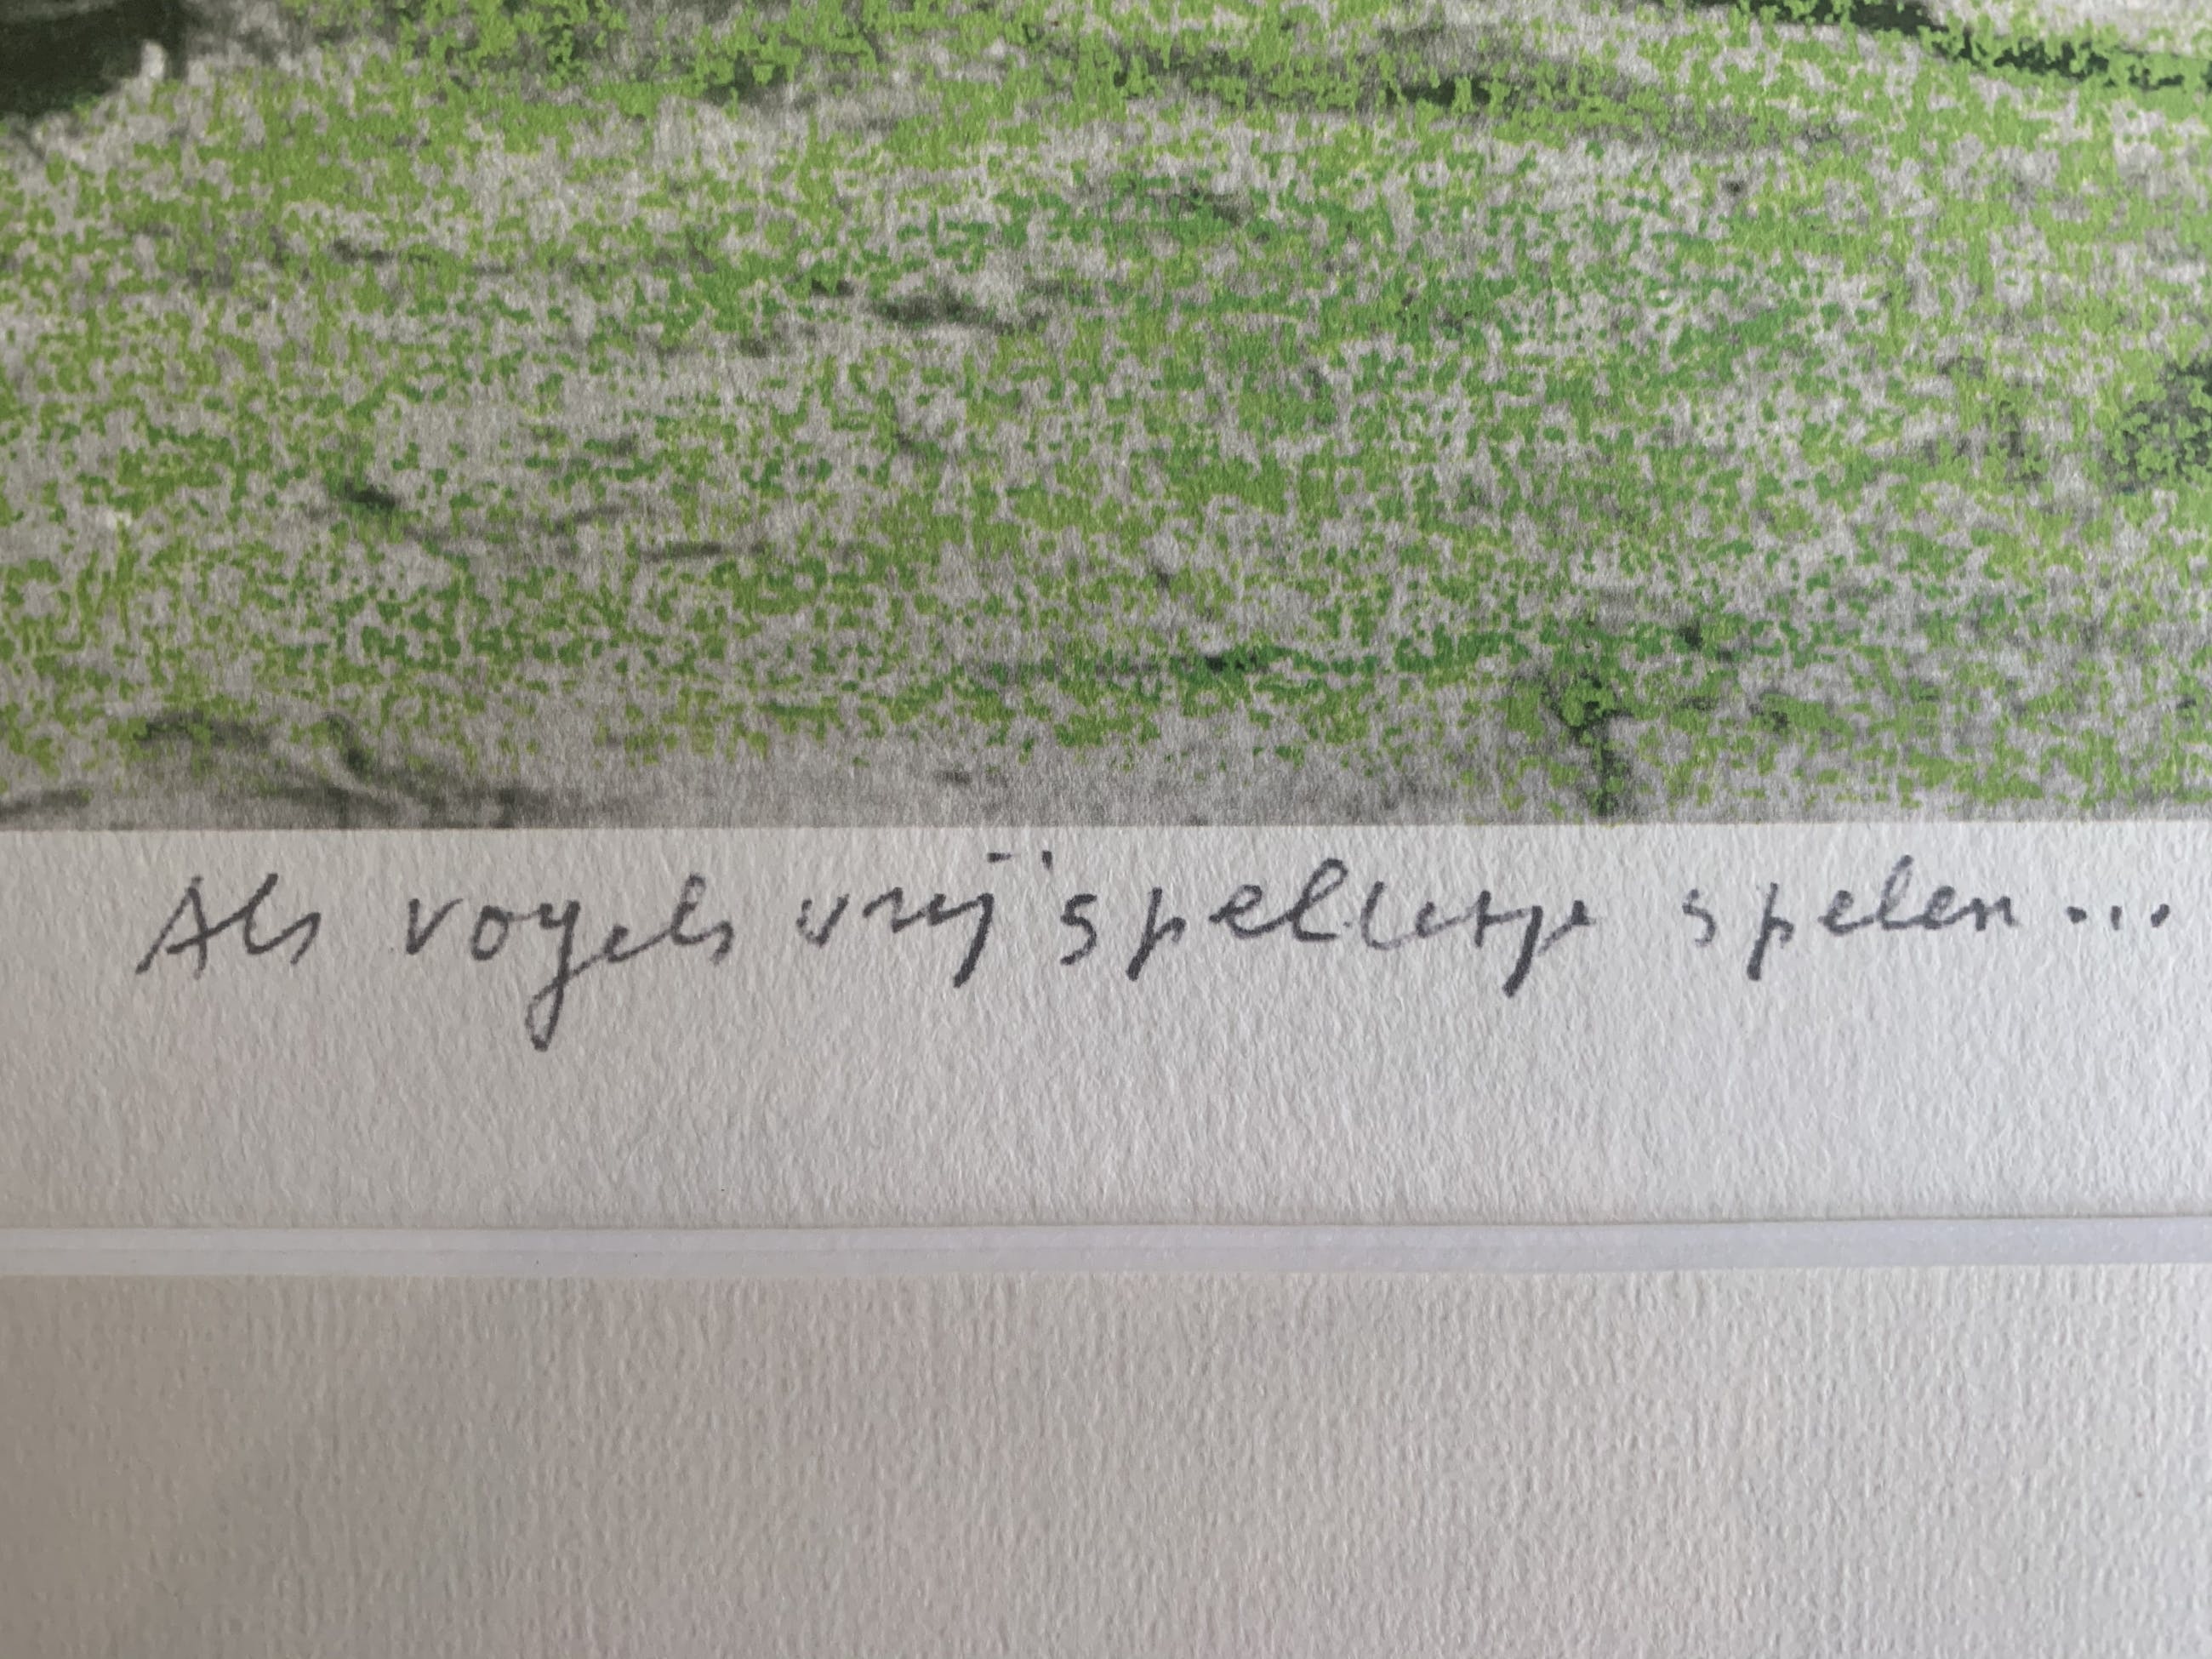 Als vogels vrij spelletje spelen...